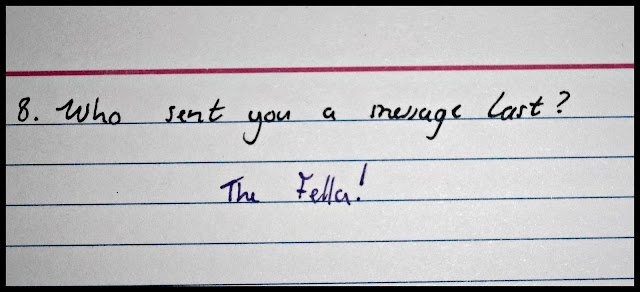 8. Who sent you a message last?
The Fella!